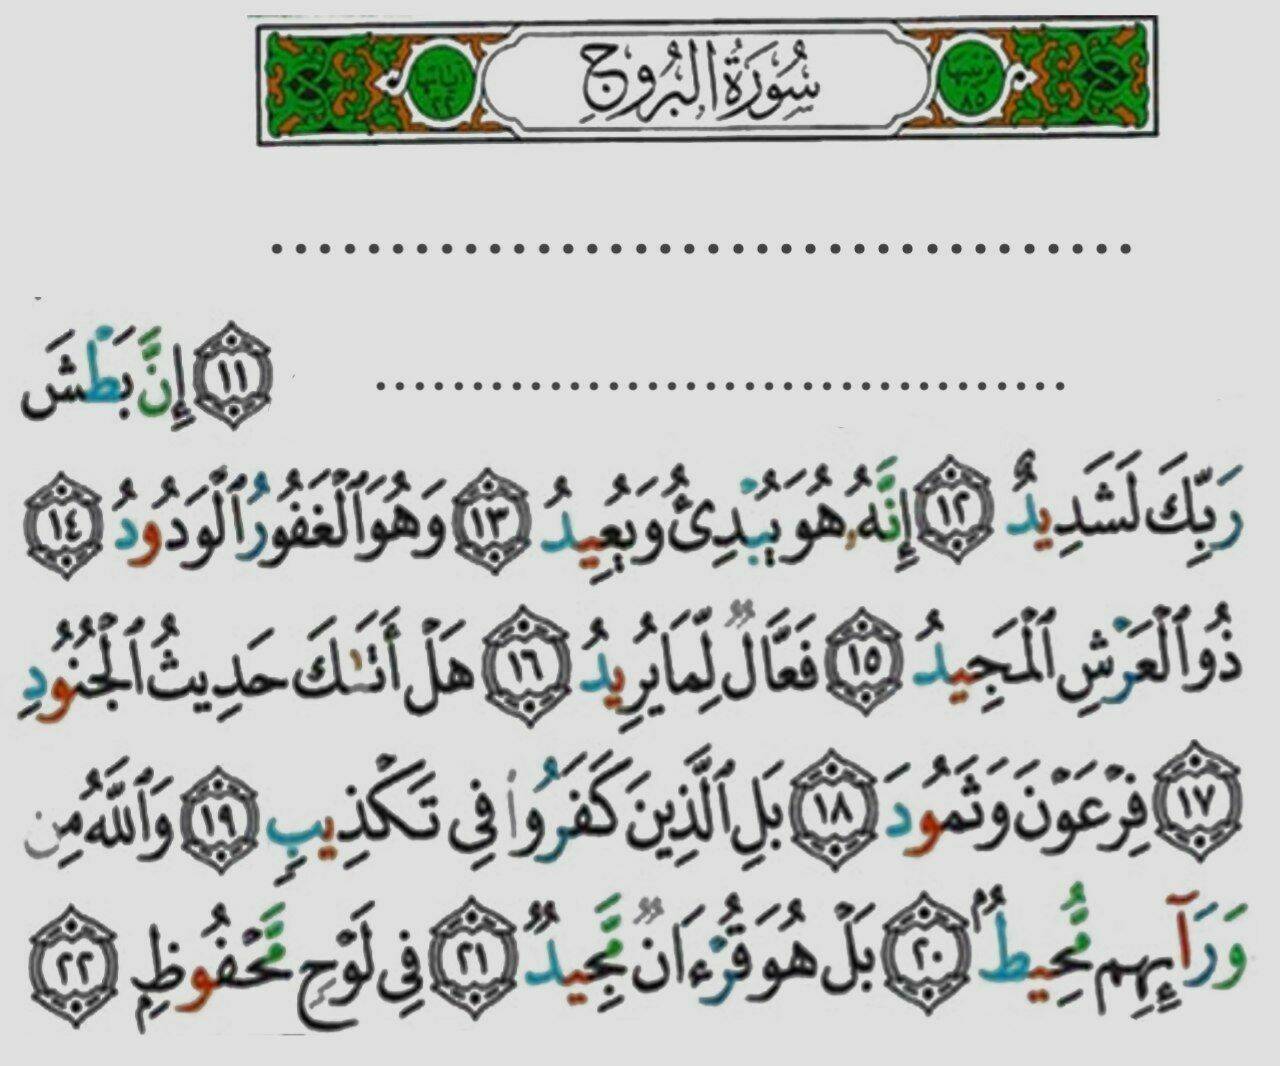 ترتيبها ٨٥ سُورَةُ البُرُوجِ آياتها ٢٢
................................................
................................................ ١١ إِنَّ بَطْشَ
رَبِّكَ لَشَدِيدٌ ١٢ إِنَّهُۥ هُوَ يُبْدِئُ وَيُعِيدُ ١٣ وَهُوَ ٱلْغَفُورُ ٱلْوَدُودُ ١٤
ذُو ٱلْعَرْشِ ٱلْمَجِيدُ ١٥ فَعَّالٌ لِّمَا يُرِيدُ ١٦ هَلْ أَتَىٰكَ حَدِيثُ ٱلْجُنُودِ
١٧ فِرْعَوْنَ وَثَمُودَ ١٨ بَلِ ٱلَّذِينَ كَفَرُوا۟ فِى تَكْذِيبٍ ١٩ وَٱللَّهُ مِن
وَرَآئِهِم مُّحِيطٌۢ ٢٠ بَلْ هُوَ قُرْءَانٌ مَّجِيدٌ ٢١ فِى لَوْحٍ مَّحْفُوظٍۭ ٢٢